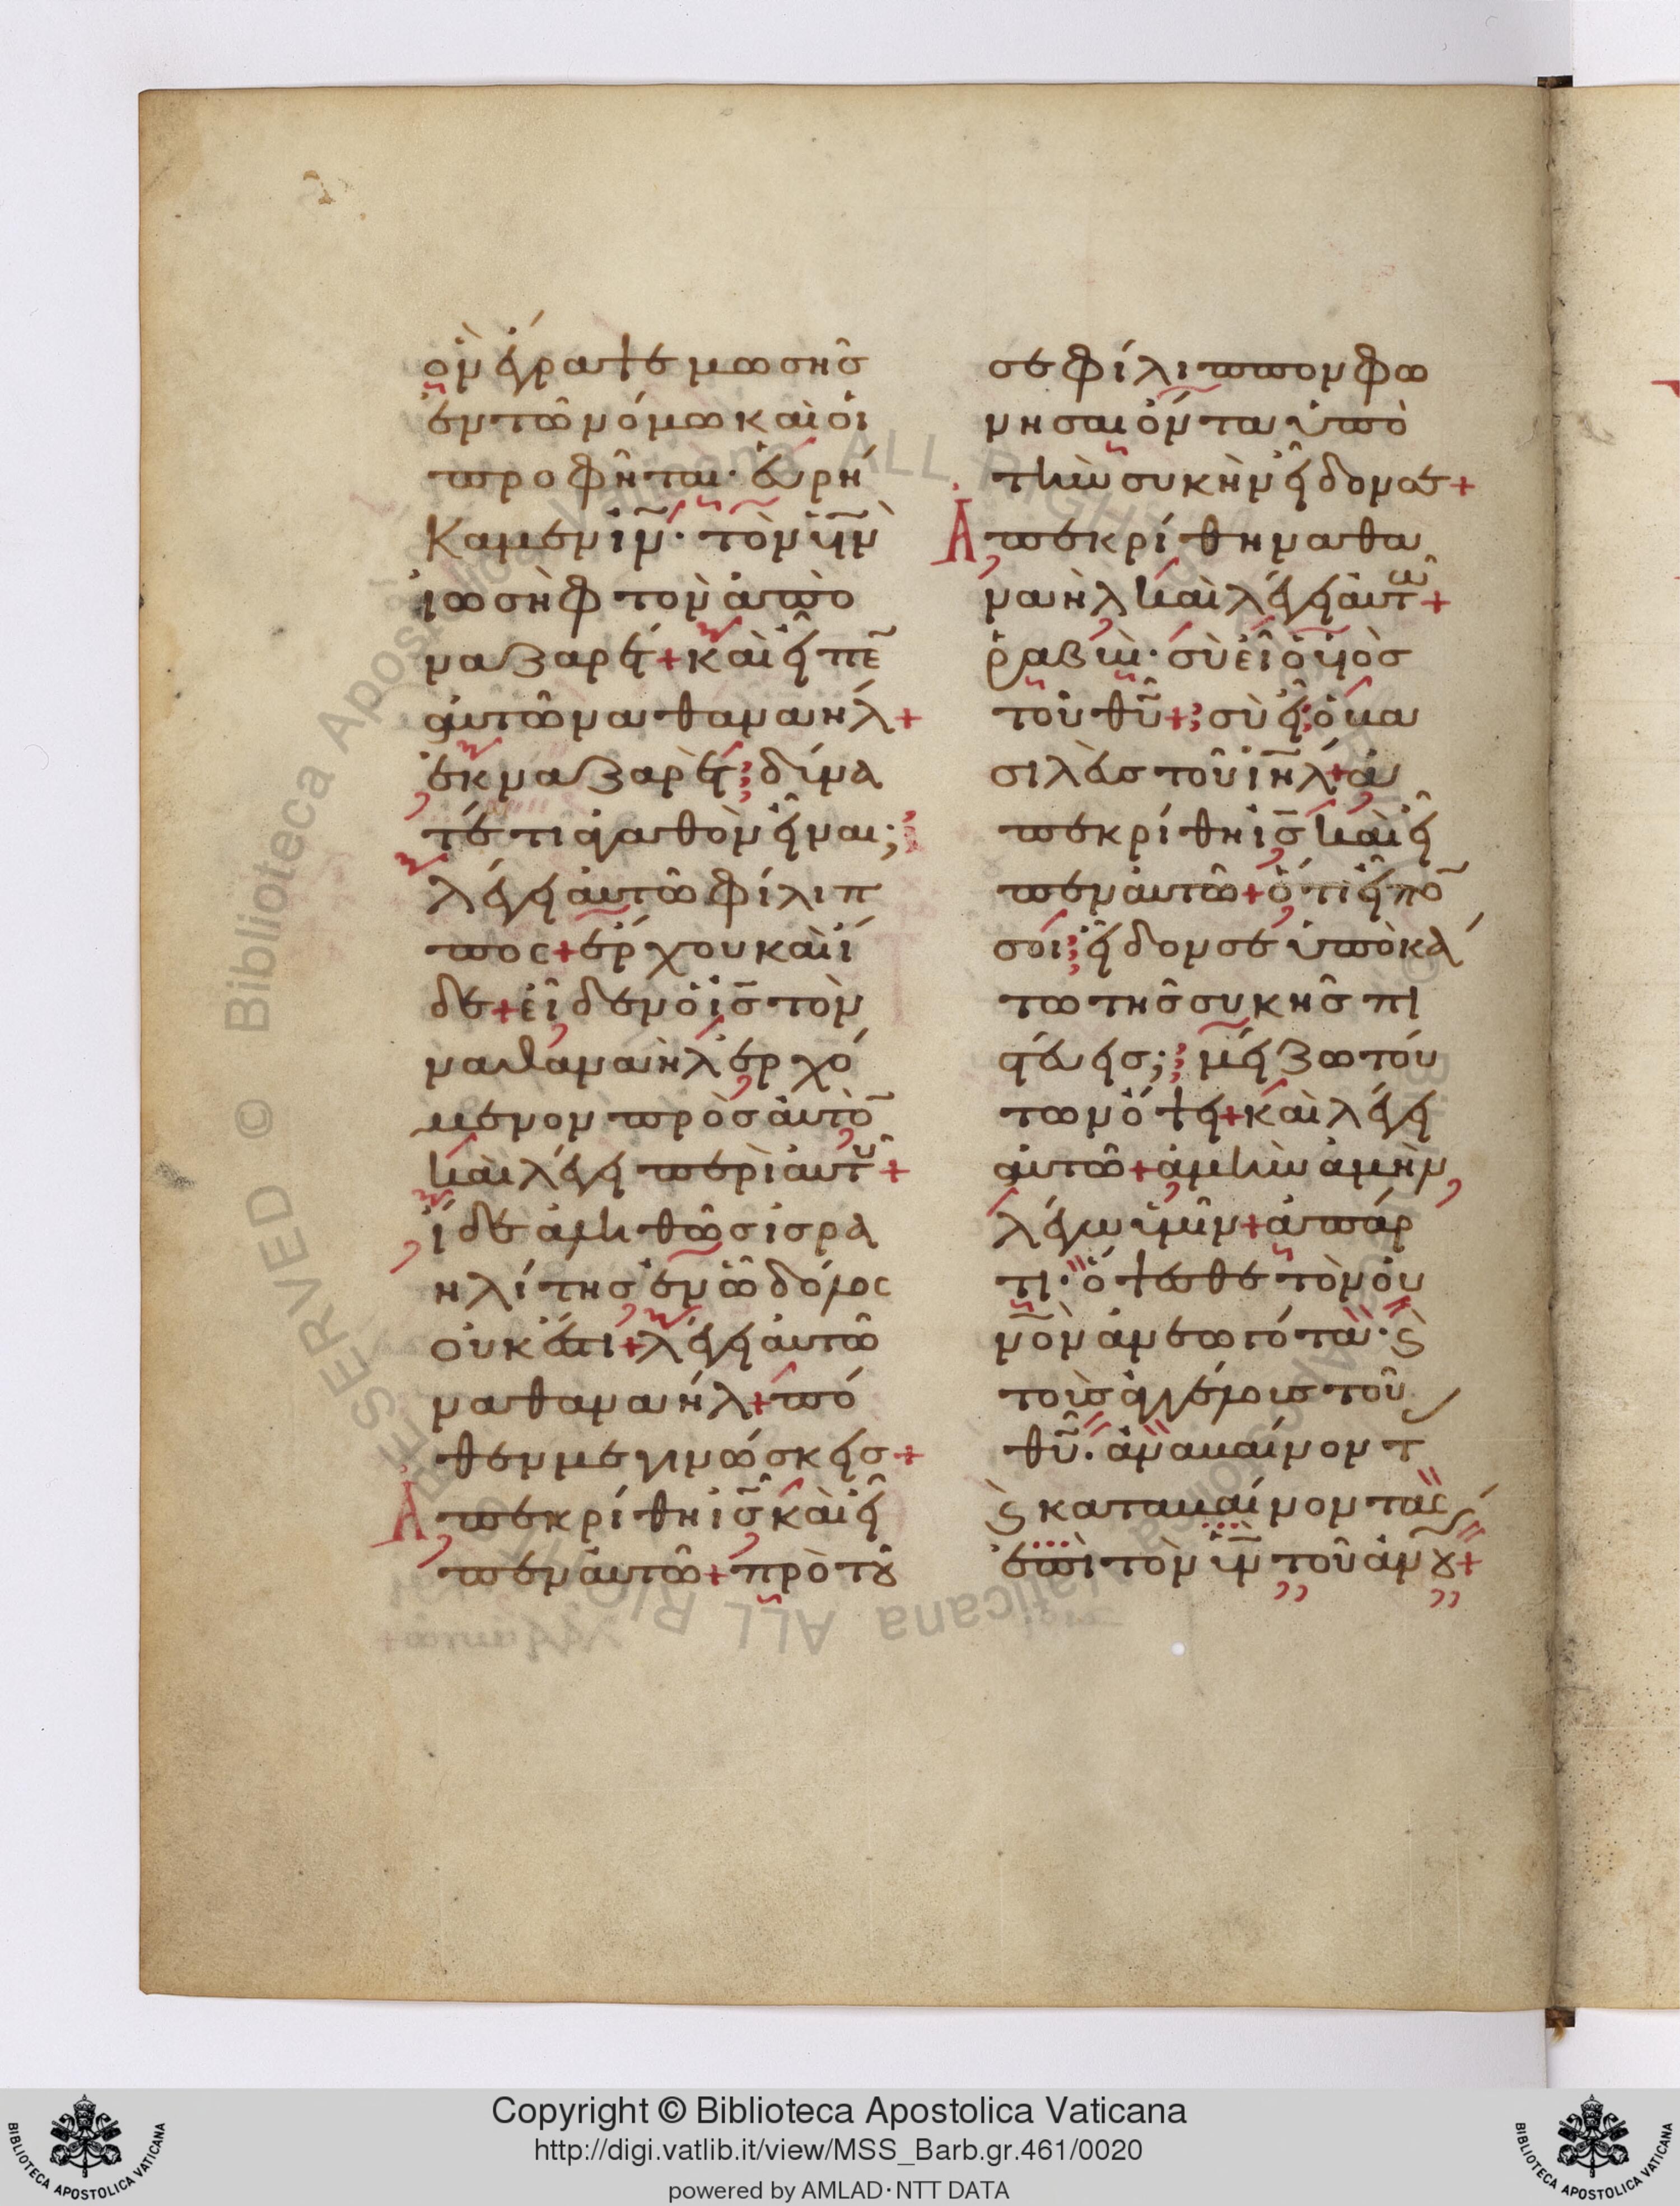 ὃν ἔγραψε μωσῆς
ἐν τῶ νόμω καὶ οἱ
προφῆται· εὑρή
καμεν ιν̄· τὸν υἱν̄
ἰωσὴφ τὸν ἀπὸ
ναζαρέτ + καὶ εἶπε
αὐτῶ ναθαναήλ +
ἐκ ναζαρὲτ δύνα
τέ τι ἀγαθὸν εἶναι;
λέγει αὐτῶ φίλιπ
πος + ἔρχου καὶ ἴ
δε + εἶδεν ὁ ις̄ τὸν
ναθαναὴλ ἐρχό
μενον πρὸς αὐτὸ̄
καὶ λέγει περὶ αὐτοῦ +
ἴδε ἀληθῶς ἰσρα
ηλίτης ἐν ῶ δόλος
οὐκ ἔστι + λέγει αὐτῶ
ναθαναήλ + πό
θεν με γινώσκεις +
Ἀπεκρίθη ις̄ καὶ εἶ
πεν αὐτῶ + πρὸ τοῦ
σε φίλιππον φω
νῆσαι ὄντα ὑπὸ
τὴν συκὴν εἶδόν σε +
Ἀπεκρίθη ναθα
ναὴλ καὶ λέγει αὐτῶ +
ῥαββί· σὺ εἶ ὁ υἱὸς
τοῦ θῡ + σὺ εἶ ὁ βα
σιλεὺς τοῦ ιη̄λ + ἀ
πεκρίθη ις̄ καὶ εἶ
πεν αὐτῶ + ὅτι εἶπο̄
σοι εἶδόν σε ὑποκά
τω τῆς συκῆς πι
στεύεις; μείζω τού
των ὄψει + καὶ λέγει
αὐτῶ + ἀμὴν ἀμὴν
λέγω ὑμῖν + ἀπάρ
τι· ὄψεσθε τὸν οὐ
νον̄ ἀνεωγότα· καὶ
τοὺς ἀγγέλους τοῦ
θῡ· ἀναβαίνοντ
καὶ καταβαίνοντας
ἐπὶ τὸν υἱν̄ τοῦ ἀνου +
Copyright © Biblioteca Apostolica Vaticana
http://digi.vatlib.it/view/MSS_Barb.gr.461/0020
powered by AMLAD·NTT DATA